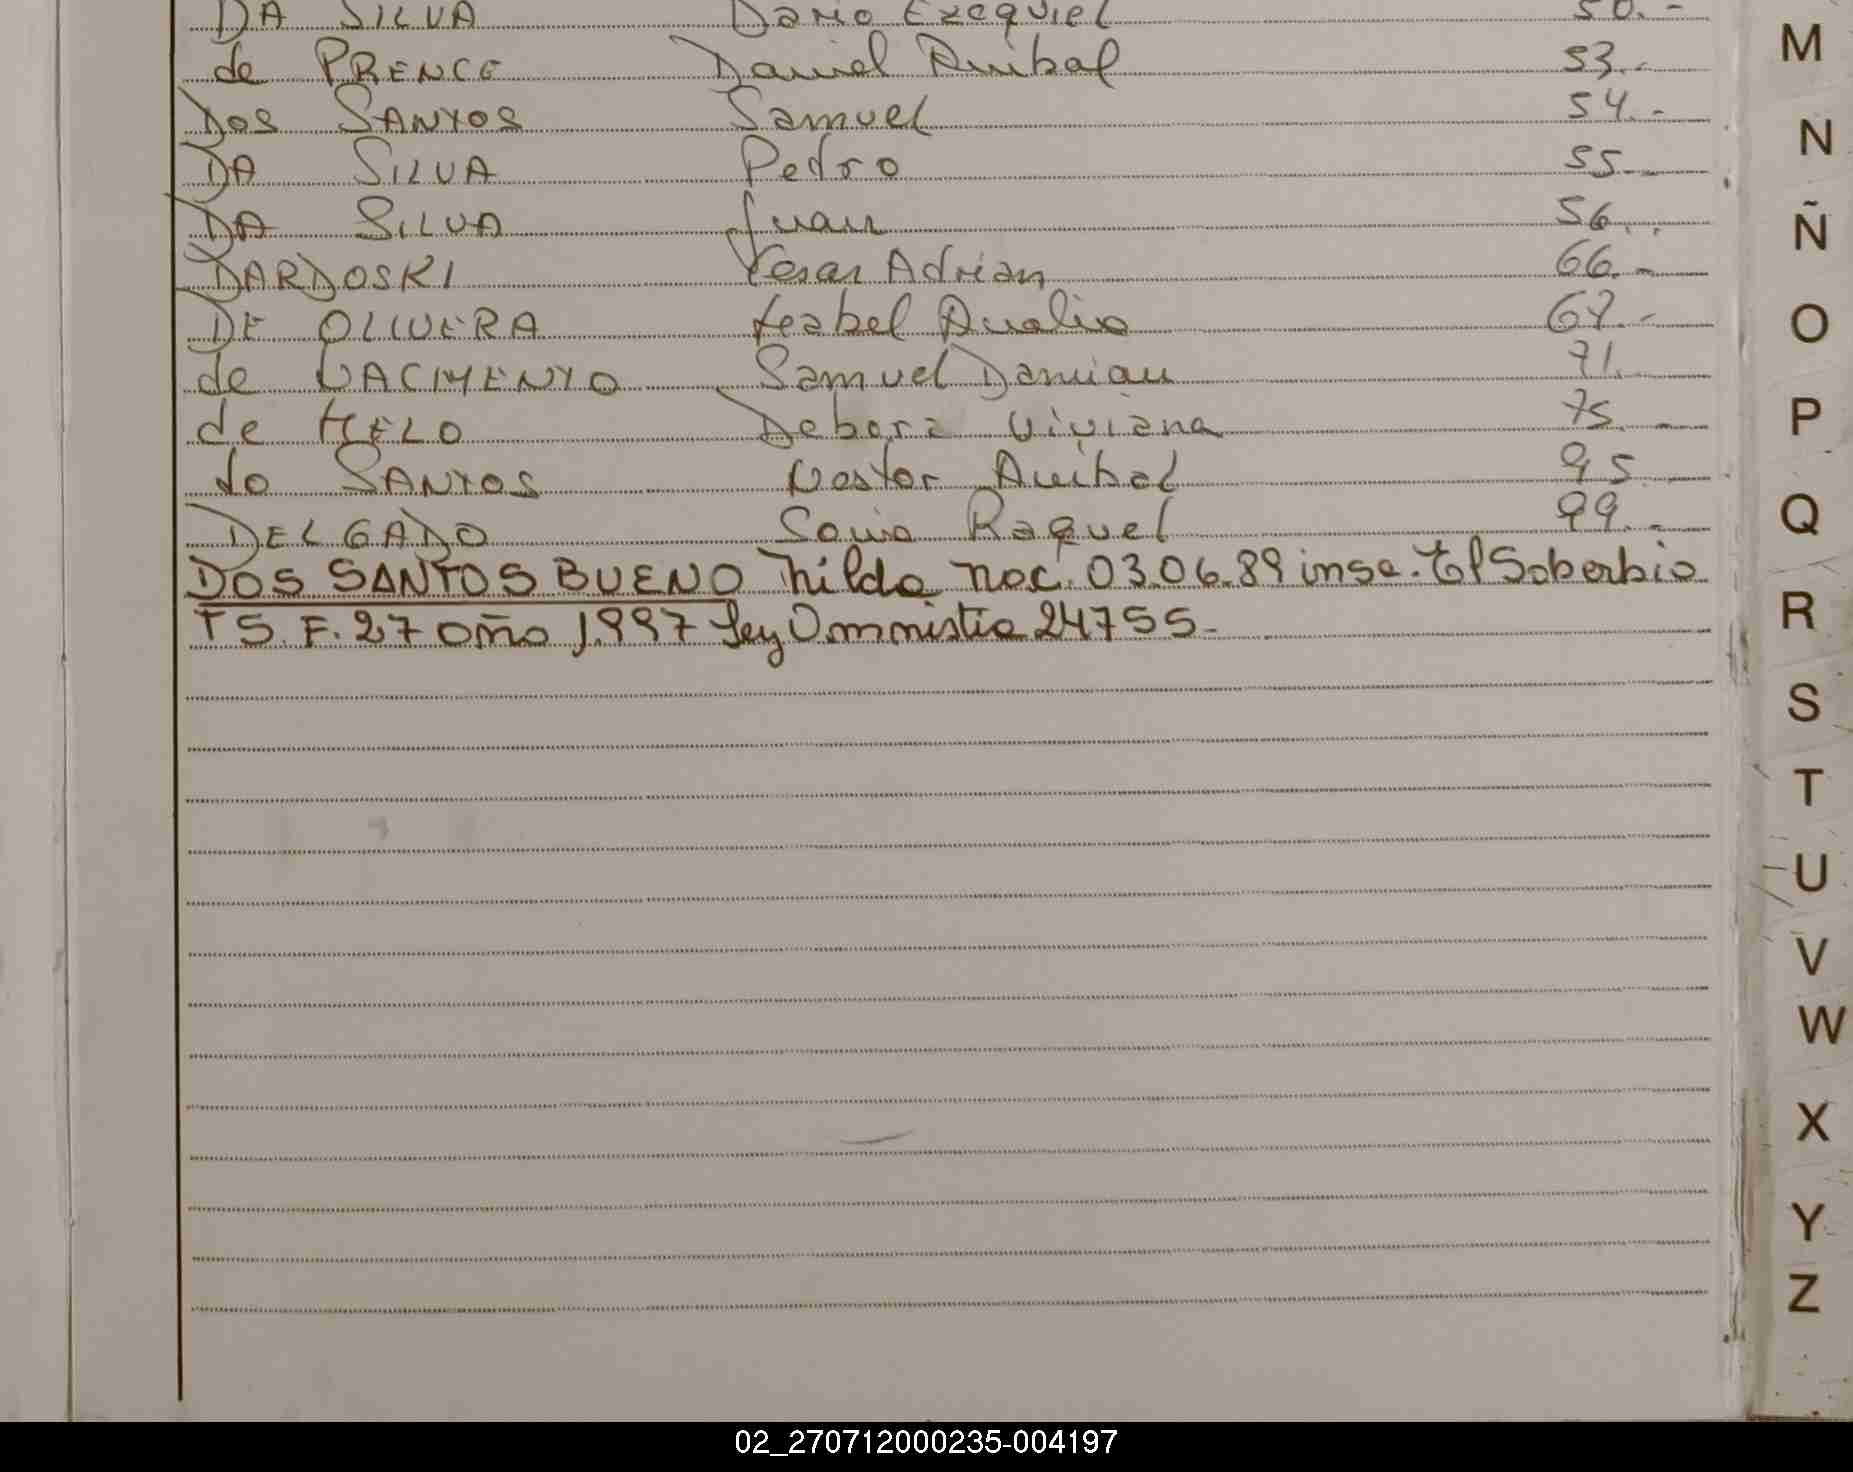 DA SILVA Dario Ezequiel 50.-
de PRENCE Daniel Anibal 53.-
DOS SANTOS Samuel 54.-
DA SILVA Pedro 55.-
DA SILVA Juan 56..
DARDOSKI Cesar Adrian 66.-
DE OLIVERA Isabel Analia 67.-
de NACIMENTO Samuel Damian 71.
de MELO Debora Viviana 75.-
do SANTOS Nestor Anibal 95.
DELGADO Sonia Raquel 99.-
DOS SANTOS BUENO Nilda nac. 03.06.89 insc. El Soberbio
T 5. F. 27 año 1997 Ley Amnistia 24755.-
M
N
Ñ
O
P
Q
R
S
T
U
V
W
X
Y
Z
02_270712000235-004197